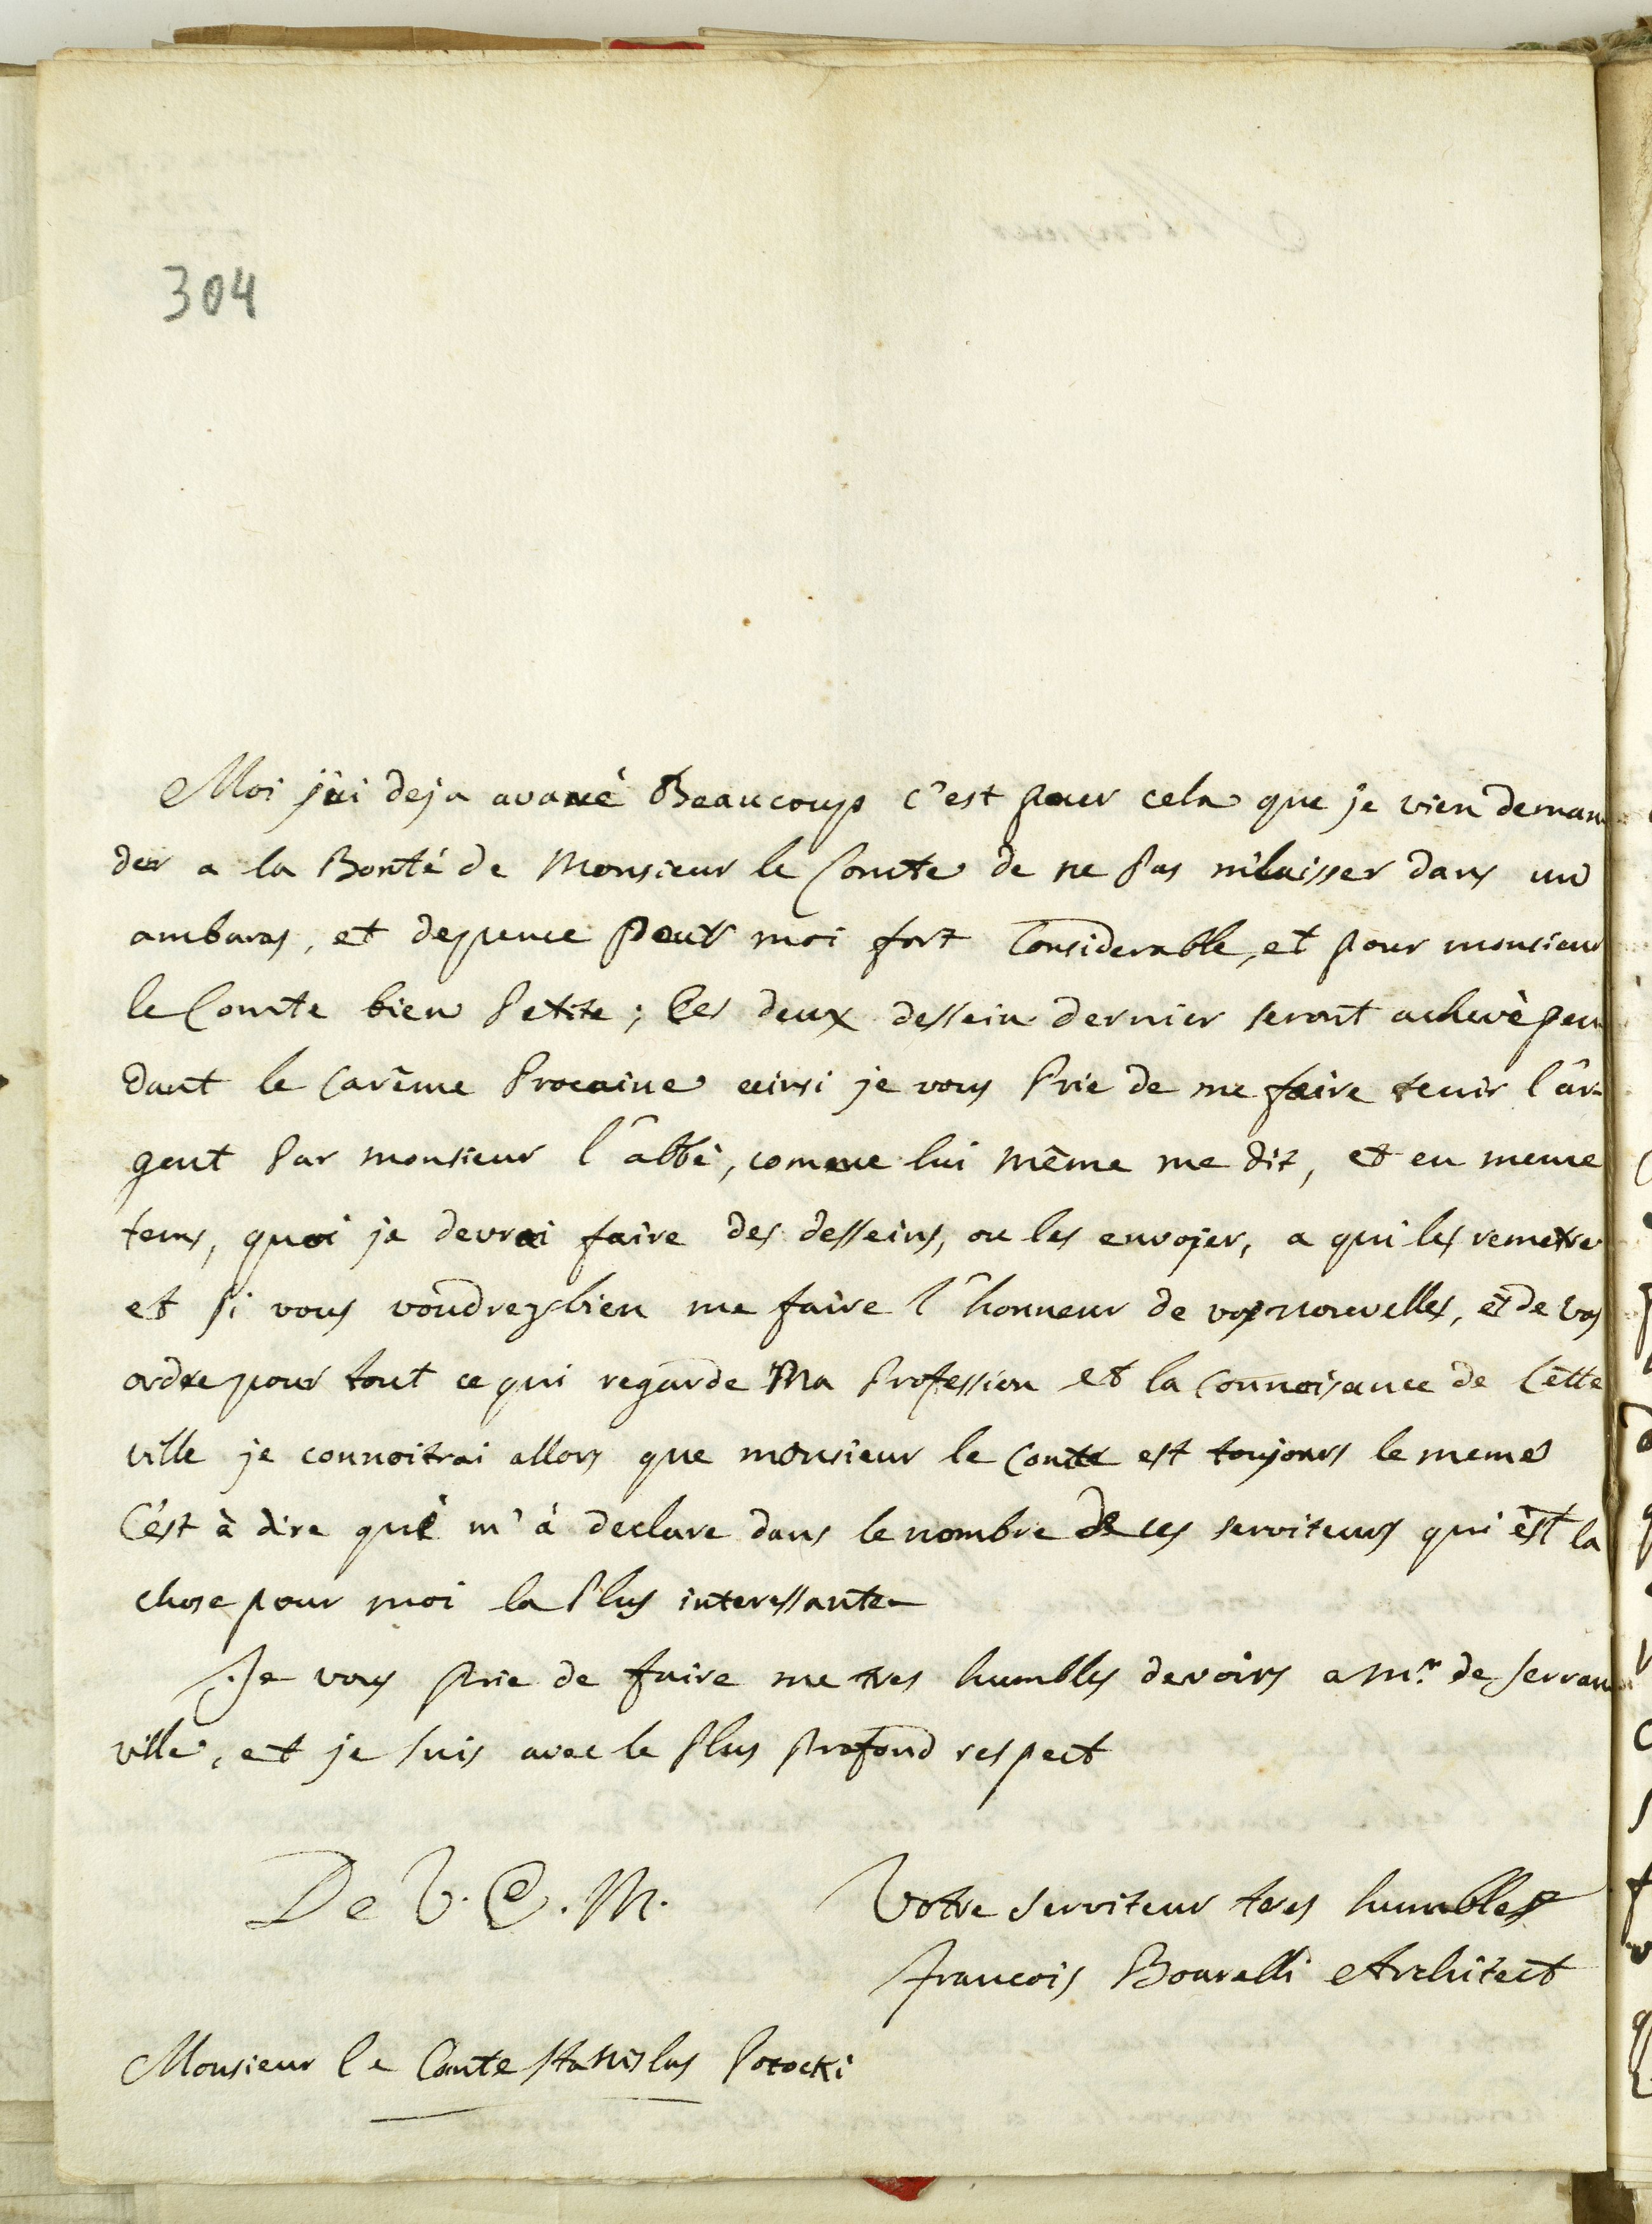 304
Moi j'ai deja avancé Beaucoup c'est pour cela que je vien deman
der a la Bonté de Monsieur le Comte de ne Pas m'laisser dans un
ambaras, et depence pour moi fort Considerable, et pour monsieur
le Comte bien Petite; Les deux dessein dernier seront achevè pen
dant le Carême Procaine ainsi je vous Prie de me faire tenir l'âr-
gent Par monsieur l'âbbé, comme lui même me dit, et en meme
tems, quoi je devrai faire des desseins, ou les envojer, a qui les remetre
et si vous voudrez bien me faire l'honneur de vos nouvelles, et de vos
ordre pour tout ce qui regarde Ma Profession et la Connoisance de Cette
ville je connoitrai allors que monsieur le Conte est toujours le meme
C'ést à dire què m'à declare dans le nombre de ces serviteurs qui èst la
chose pour moi la Plus interessante
Je vous Prie de faire me tres humbles devoirs a Mr. de Serran
ville, et je suis avec le Plus Profond respect
De V. E. M. Votre Serviteur teres humbles
Francois Bourelli Architect
Monsieur le Conte Stanislas Potocki